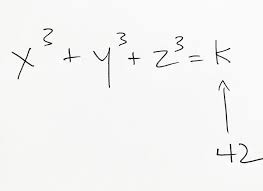 x³ + y³ + z³ = k
42